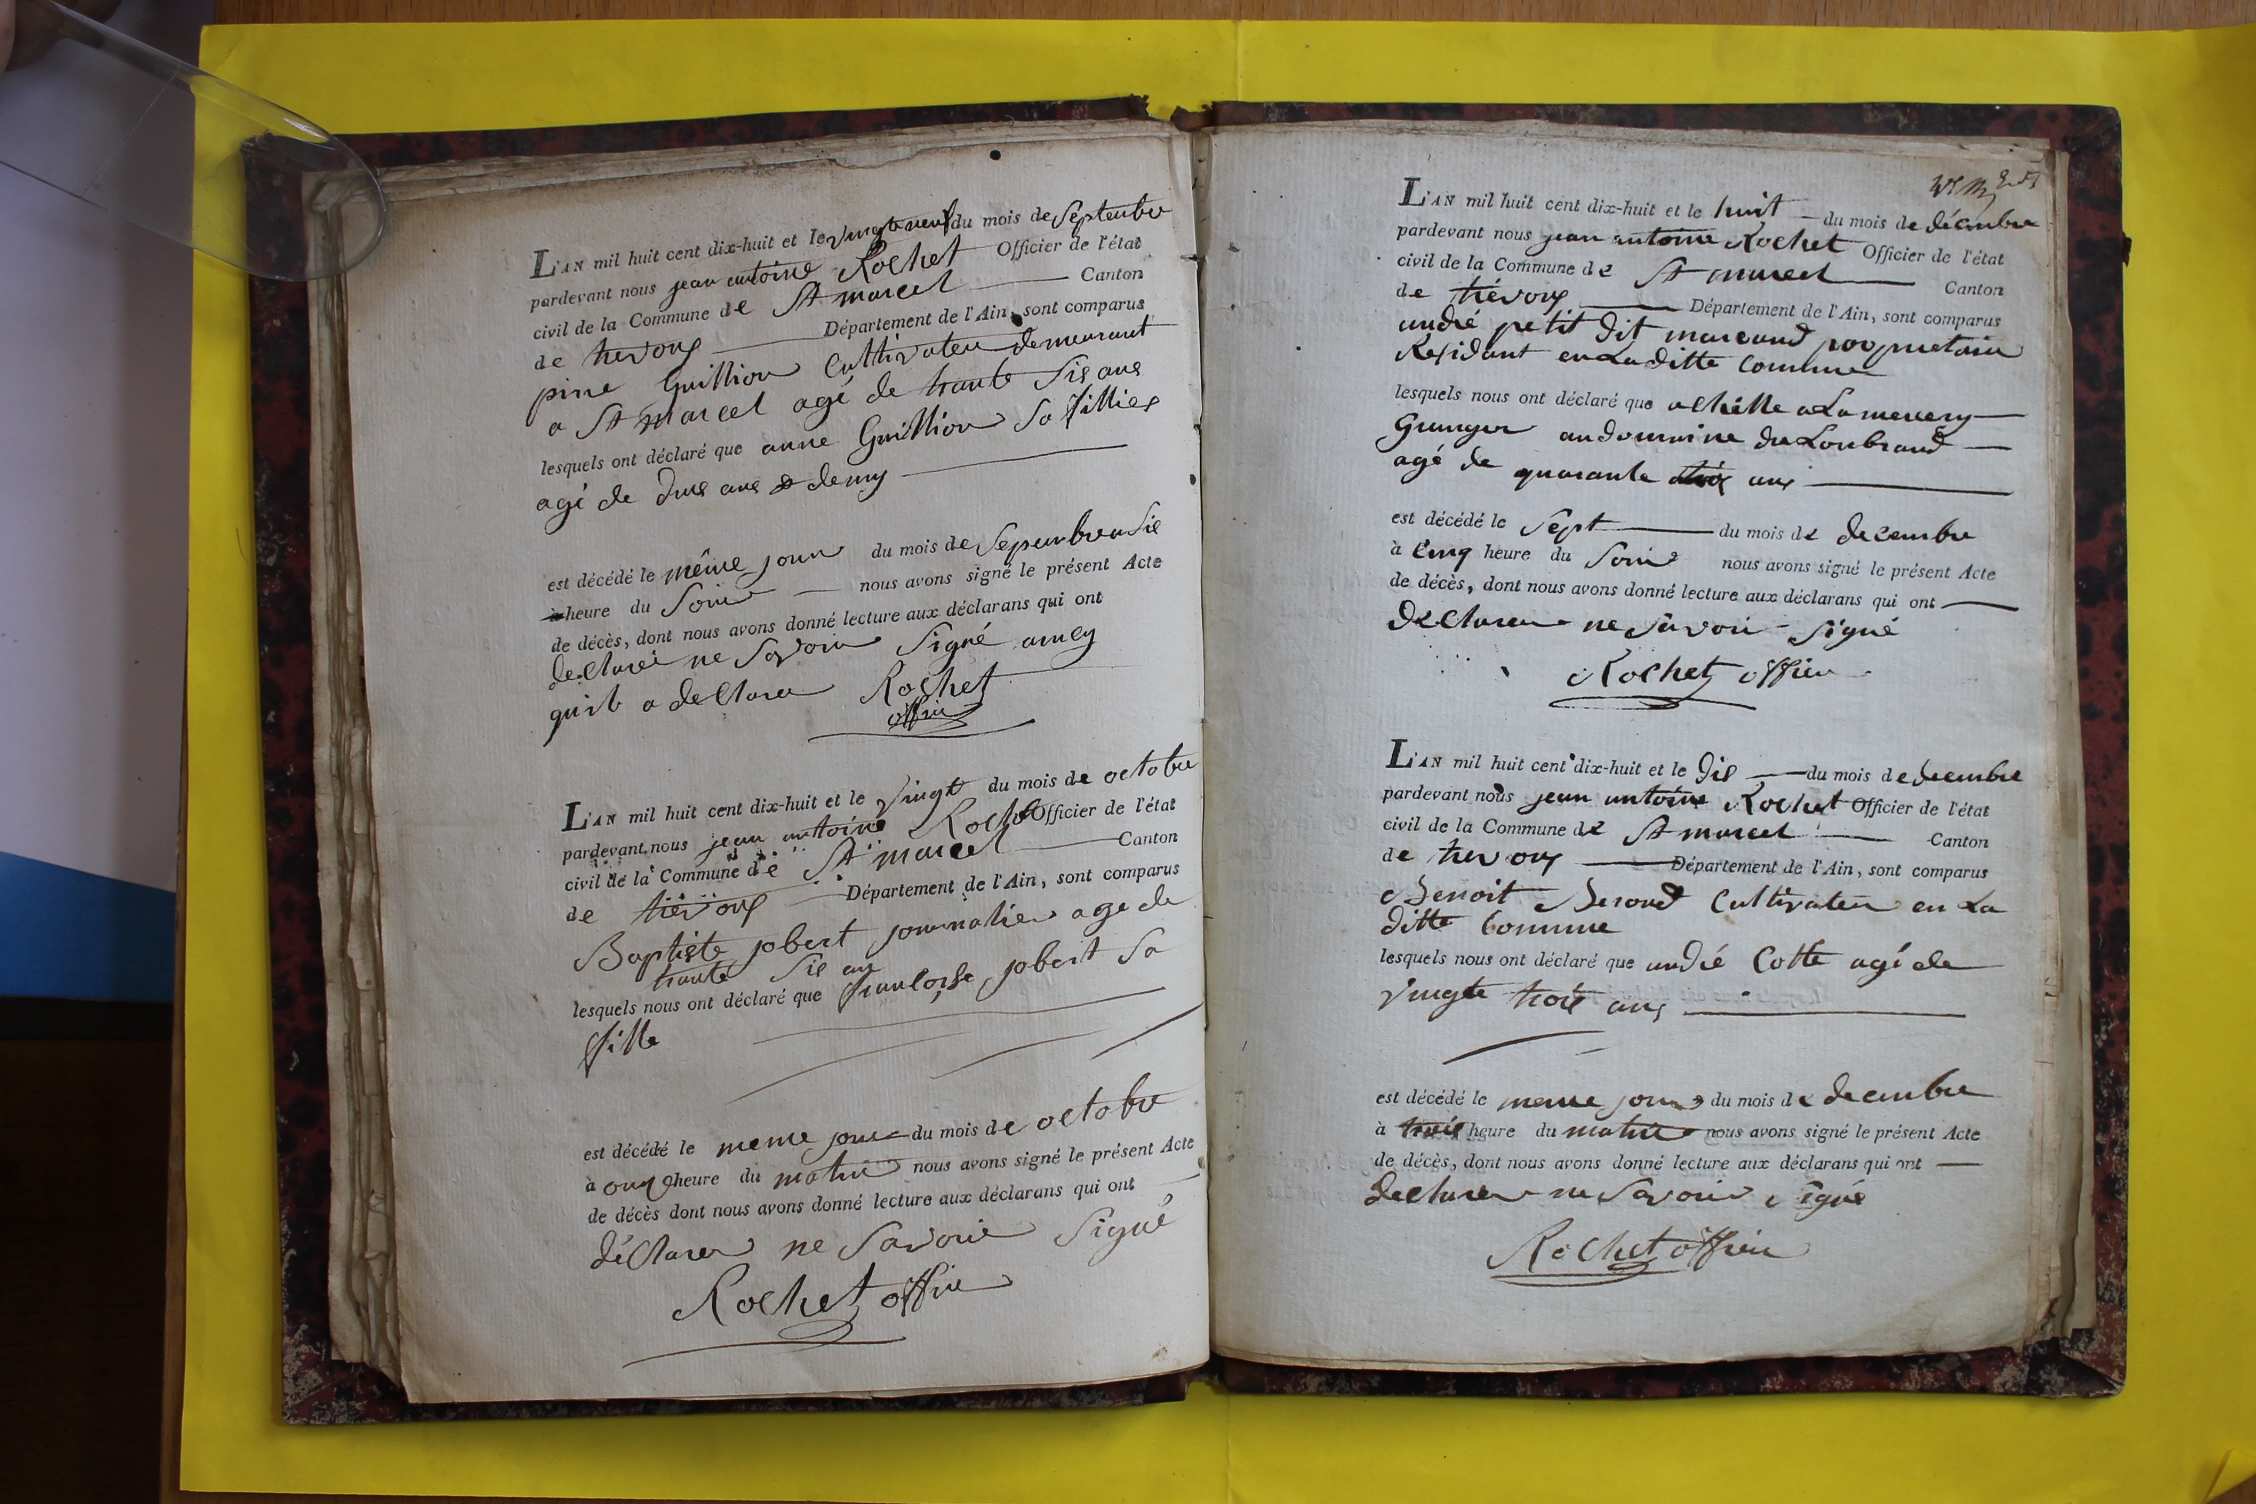 L'AN mil huit cent dix-huit et le vingt neuf du mois de Septembre
pardevant nous jean antoine Rochet Officier de l'état
civil de la Commune de St marcel Canton
de trevoux Département de l'Ain, sont comparus
pirre Guillion Cultivateur demeurant
a St marcel agé de trante Sis ans
lesquels ont déclaré que anne Guillion Sa fillies
agé de deus ans & demy
est décédé le même jour du mois de Sepembre a Sis
à heure du Soire nous avons signé le présent Acte
de décès, dont nous avons donné lecture aux déclarans qui ont
declaré ne Savoir Signé
qui a declarer Rochet
offier
L'AN mil huit cent dix-huit et le vingt du mois de octobre
pardevant nous jean antoine Rochet Officier de l'état
civil de la Commune de St marcel Canton
de trévoux Département de l'Ain, sont comparus
Baptiste jobert journalier age de
trante Sis ans
lesquels nous ont déclaré que francoise jobert Sa
fille
est décédé le meme jour du mois de octobre
à onze heure du matin nous avons signé le présent Acte
de décès dont nous avons donné lecture aux déclarans qui ont
déclarer ne Savoire Signé
Rochet offier
L'AN mil huit cent dix-huit et le huit du mois de décembre
pardevant nous jean antoine Rochet Officier de l'état
civil de la Commune de St marcel Canton
de trévoux Département de l'Ain, sont comparus
andré petit dit marcand propriétaire
Residant en La ditte Commune
lesquels nous ont déclaré que
Granger au domaine de Lonbrand
agé de quarante ans
est décédé le Sept du mois de decembre
à Cinq heure du Soire nous avons signé le présent Acte
de décès, dont nous avons donné lecture aux déclarans qui ont
declarer ne Savoir Signé
Rochet offier
L'AN mil huit cent dix-huit et le dis du mois de decembre
pardevant nous jean antoine Rochet Officier de l'état
civil de la Commune de St marcel Canton
de trevoux Département de l'Ain, sont comparus
Benoit Beroud Cultivateur en La
ditte Commune
lesquels nous ont déclaré que andré Cotte agé de
vingte trois ans
est décédé le meme jour du mois de decembre
à trois heure du matin nous avons signé le présent Acte
de décès, dont nous avons donné lecture aux déclarans qui ont
declarer ne Savoire Signé
Rochet offier